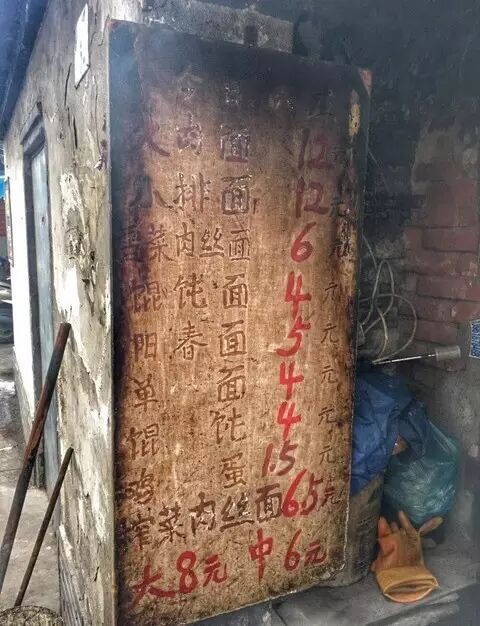 今日
大肉面 12元
小排面 12元
雪菜肉丝面 6元
馄饨面 4元
阳春面 5元
单面 4元
馄饨 4元
鸡蛋 1.5元
榨菜肉丝面 6.5元
大8元 中6元